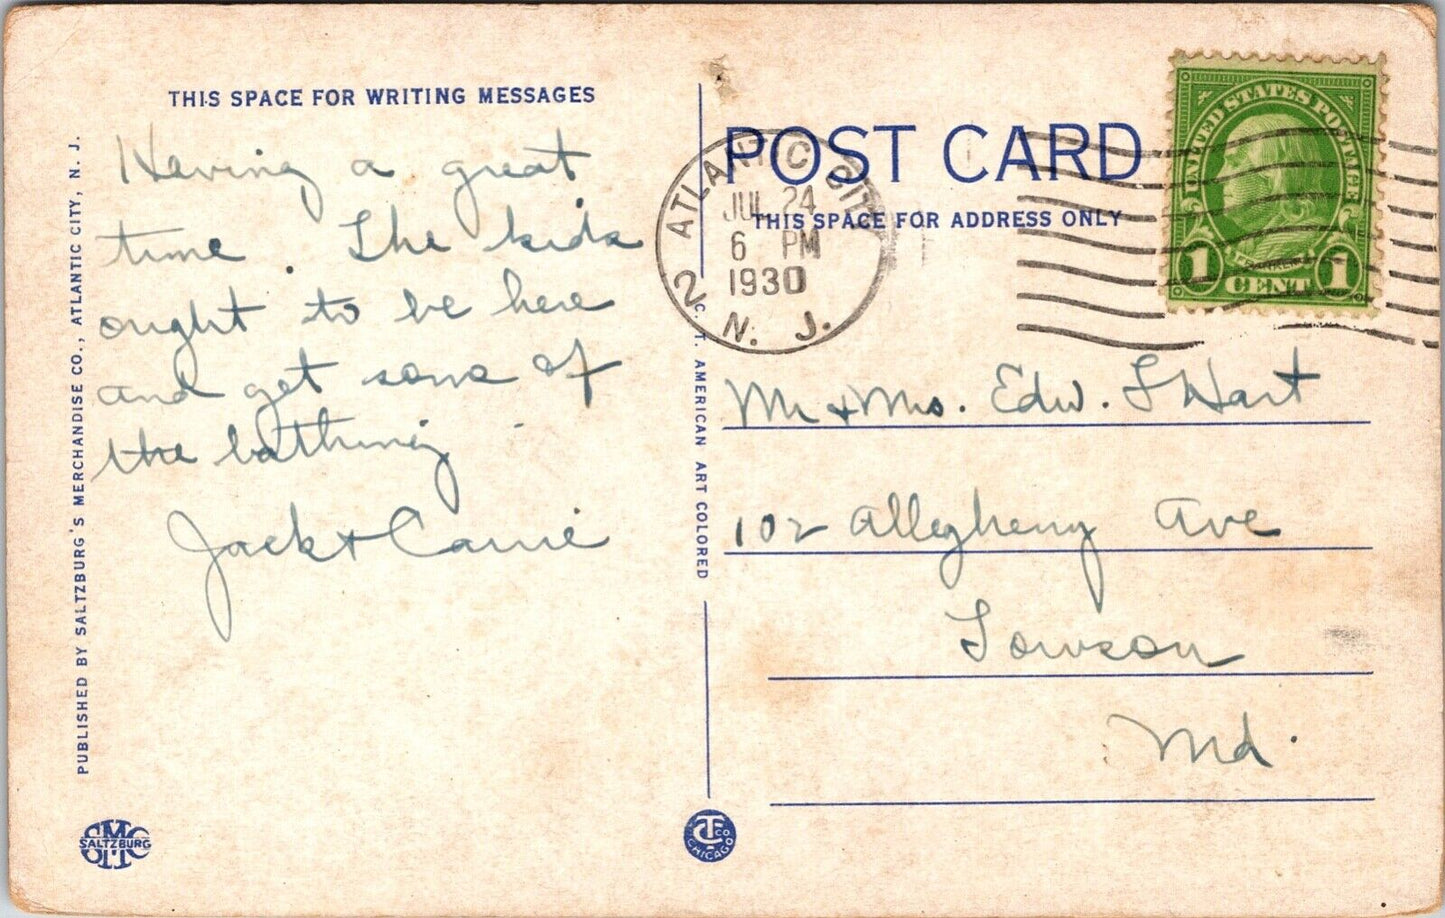 THIS SPACE FOR WRITING MESSAGES
Having a great
time. The kids
ought to be here
and get some of
the bathing
Jack + Carrie
PUBLISHED BY SALTZBURG'S MERCHANDISE CO., ATLANTIC CITY, N. J.
SMC
SALTZBURG
C. T. AMERICAN ART COLORED
CT CO
CHICAGO
POST CARD
THIS SPACE FOR ADDRESS ONLY
ATLANTIC CITY
JUL 24
6 PM
1930
2
N. J.
UNITED STATES POSTAGE
FRANKLIN
1 CENT 1
Mr + Mrs. Edw. L Hart
102 Allegheny Ave
Towson
Md.